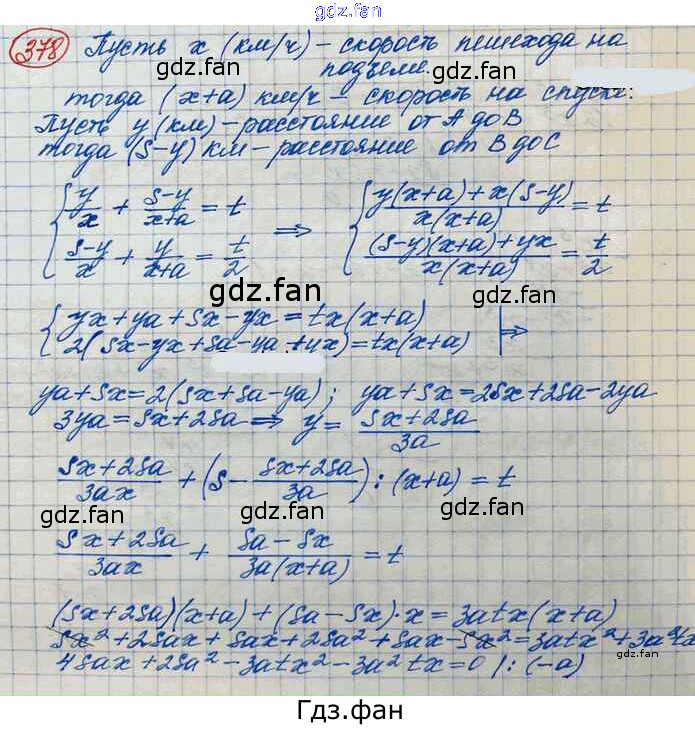 gdz.fan
378 Пусть x (км/ч) – скорость пешехода на
подъеме.
тогда (x+a) км/ч – скорость на спуске:
Пусть y (км) – расстояние от A до B
тогда (S-y) км – расстояние от B до C
{ y/x + (S-y)/(x+a) = t ⇒ { (y(x+a)+x(S-y))/(x(x+a)) = t
{ (S-y)/x + y/(x+a) = t/2 { ((S-y)(x+a)+yx)/(x(x+a)) = t/2
gdz.fan
{ yx+ya+Sx-yx=tx(x+a)
{ 2(Sx-yx+Sa-ya+yx)=tx(x+a) ⇒
ya+Sx=2(Sx+Sa-ya); ya+Sx=2Sx+2Sa-2ya
3ya=Sx+2Sa ⇒ y= (Sx+2Sa)/3a
gdz.fan
(Sx+2Sa)/3ax + (S - (Sx+2Sa)/3a) : (x+a) = t
gdz.fan
gdz.fan
(Sx+2Sa)/3ax + (Sa-Sx)/(3a(x+a)) = t
gdz.fan
(Sx+2Sa)(x+a)+(Sa-Sx)·x=3atx(x+a)
Sx²+2Sax+Sax+2Sa²+Sax-Sx²=3atx²+3a²tx
4Sax+2Sa²-3atx²-3a²tx=0 /:(-a)
gdz.fan
gdz.fan
Гдз.фан